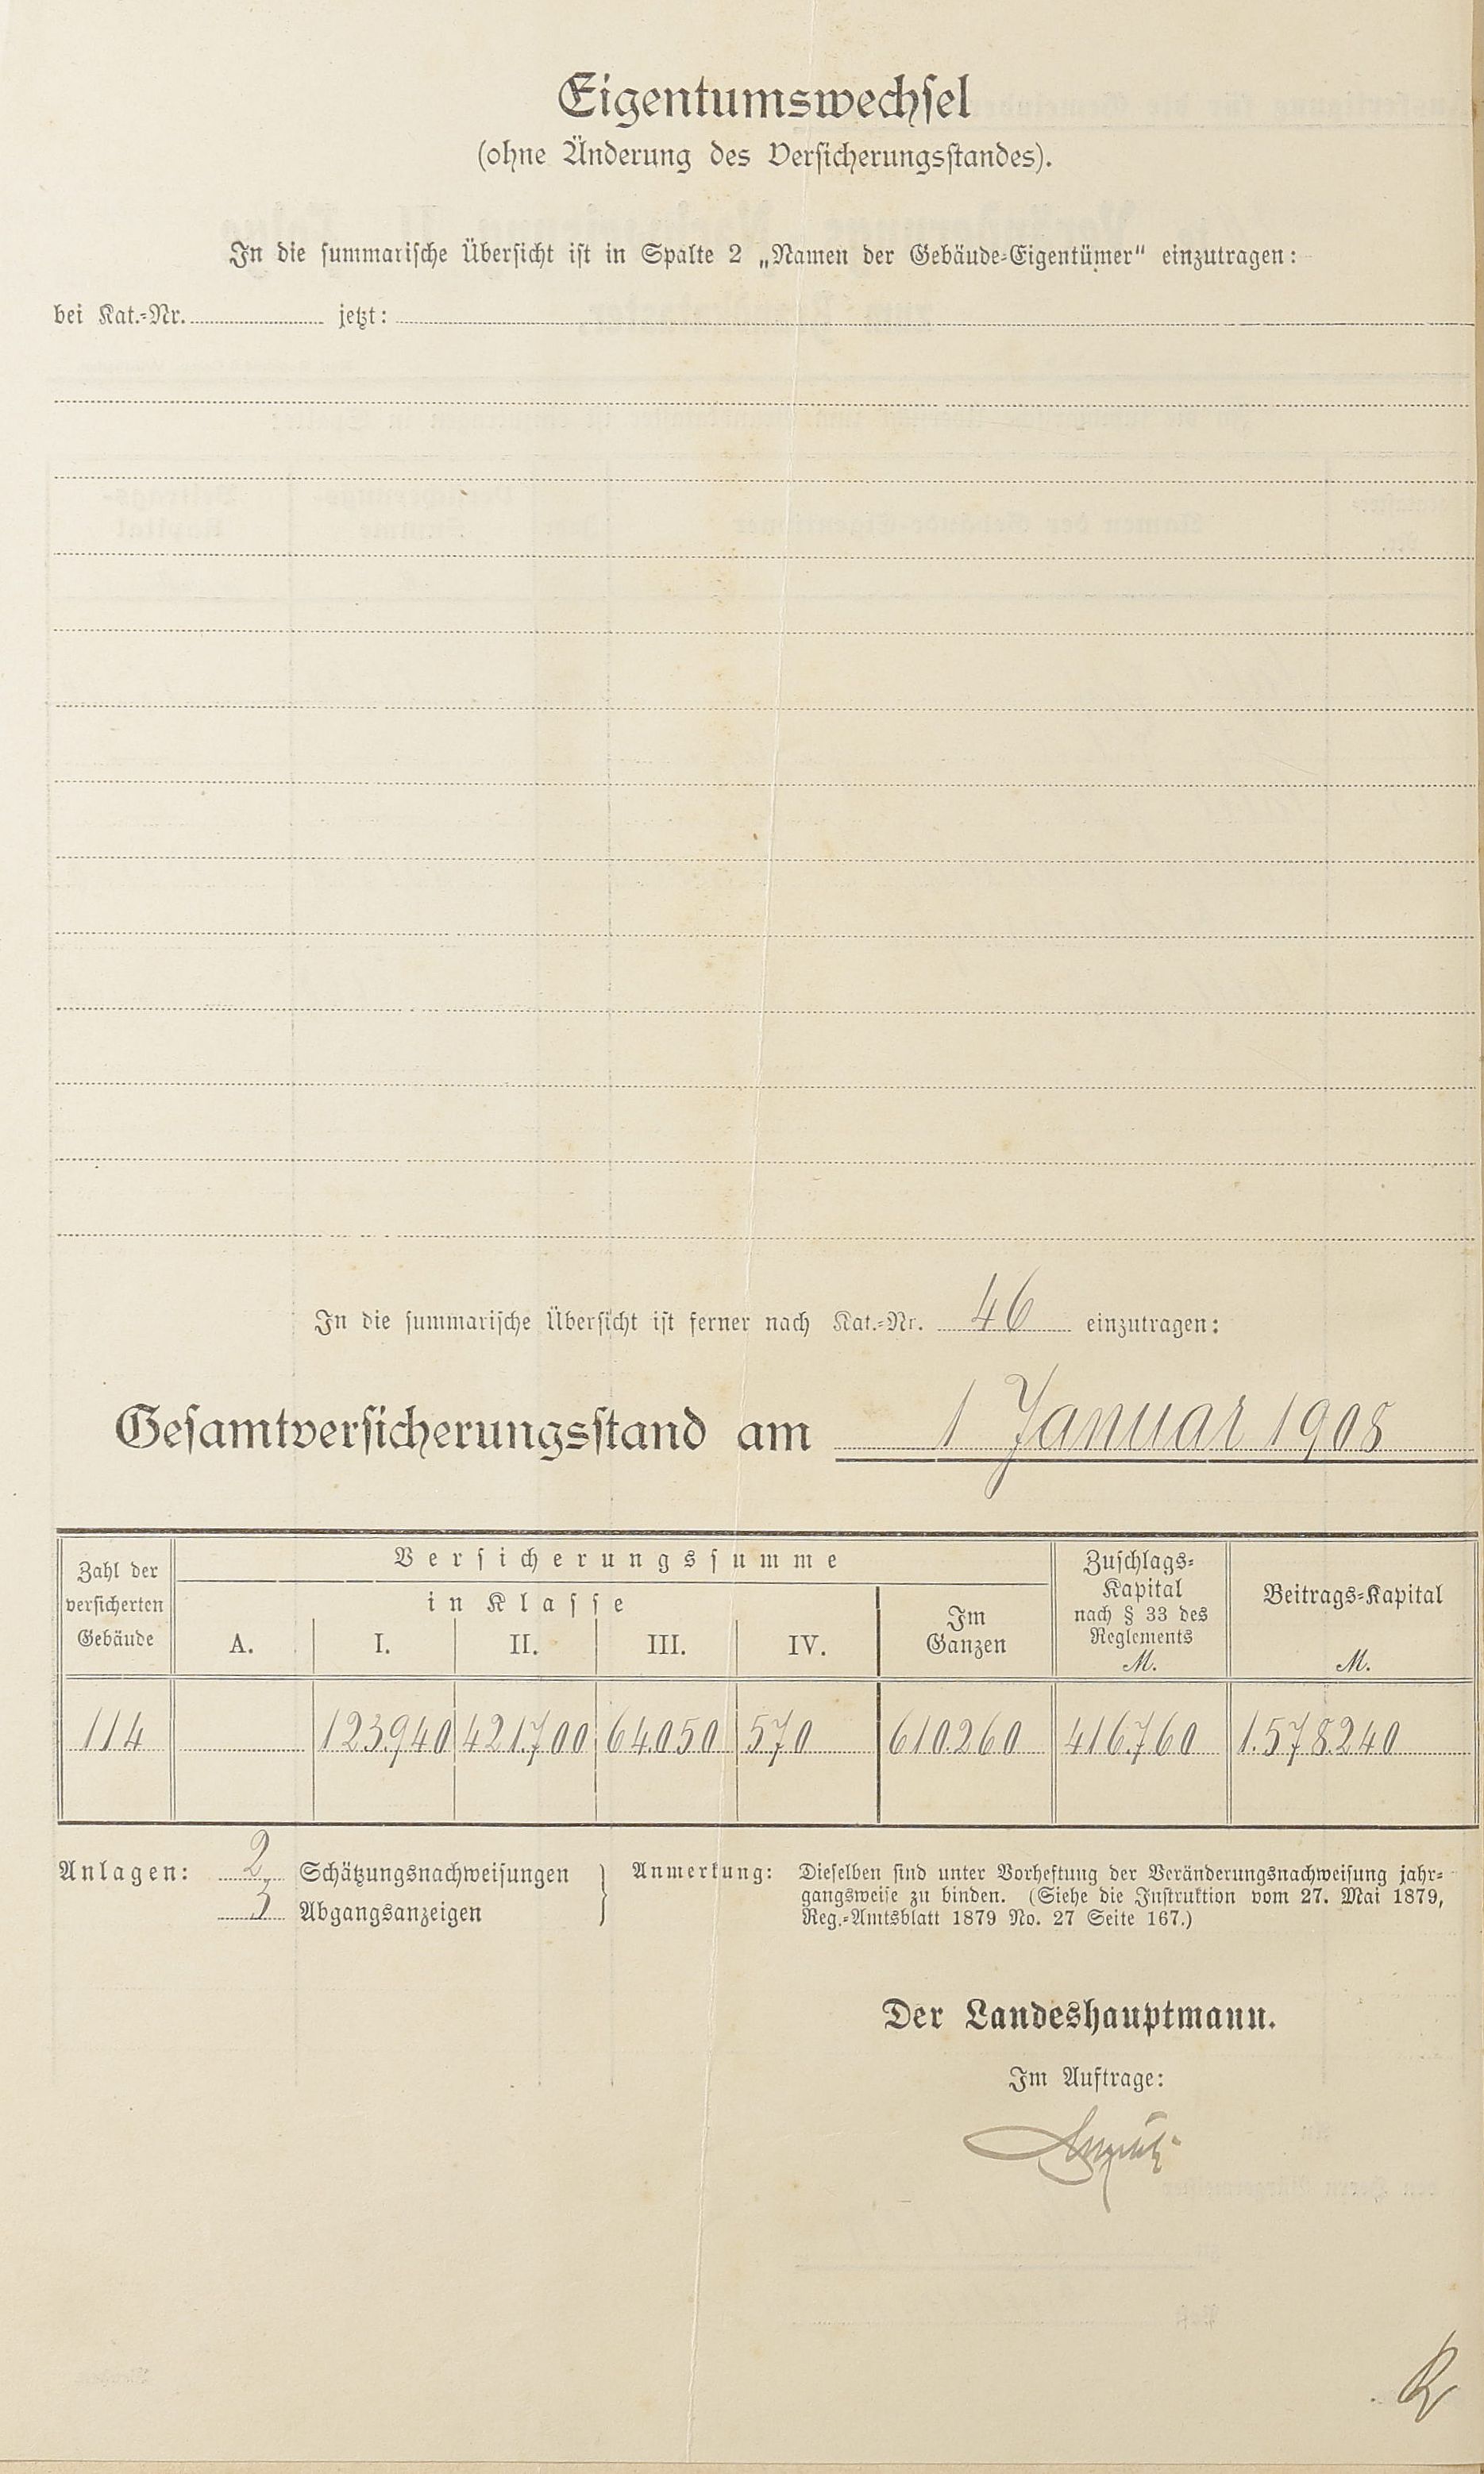 Eigentumswechsel
(ohne Änderung des Versicherungsstandes).
In die summarische Übersicht ist in Spalte 2 „Namen der Gebäude-Eigentümer" einzutragen:
bei Kat.-Nr. jetzt:
In die summarische Übersicht ist ferner nach Kat.-Nr. 46 einzutragen:
Gesamtversicherungsstand am 1 Januar 1908
Zahl der versicherten Gebäude
Versicherungssumme
in Klasse
A. I. II. III. IV.
Im Ganzen
Zuschlags-Kapital nach § 33 des Reglements M.
Beitrags-Kapital M.
114 123.940 421.700 64.050 570 610.260 416.760 1.578.240
Anlagen: 2 Schätzungsnachweisungen
3 Abgangsanzeigen
Anmerkung: Dieselben sind unter Vorheftung der Veränderungsnachweisung jahr-
gangsweise zu binden. (Siehe die Instruktion vom 27. Mai 1879,
Reg.-Amtsblatt 1879 No. 27 Seite 167.)
Der Landeshauptmann.
Im Auftrage:
R